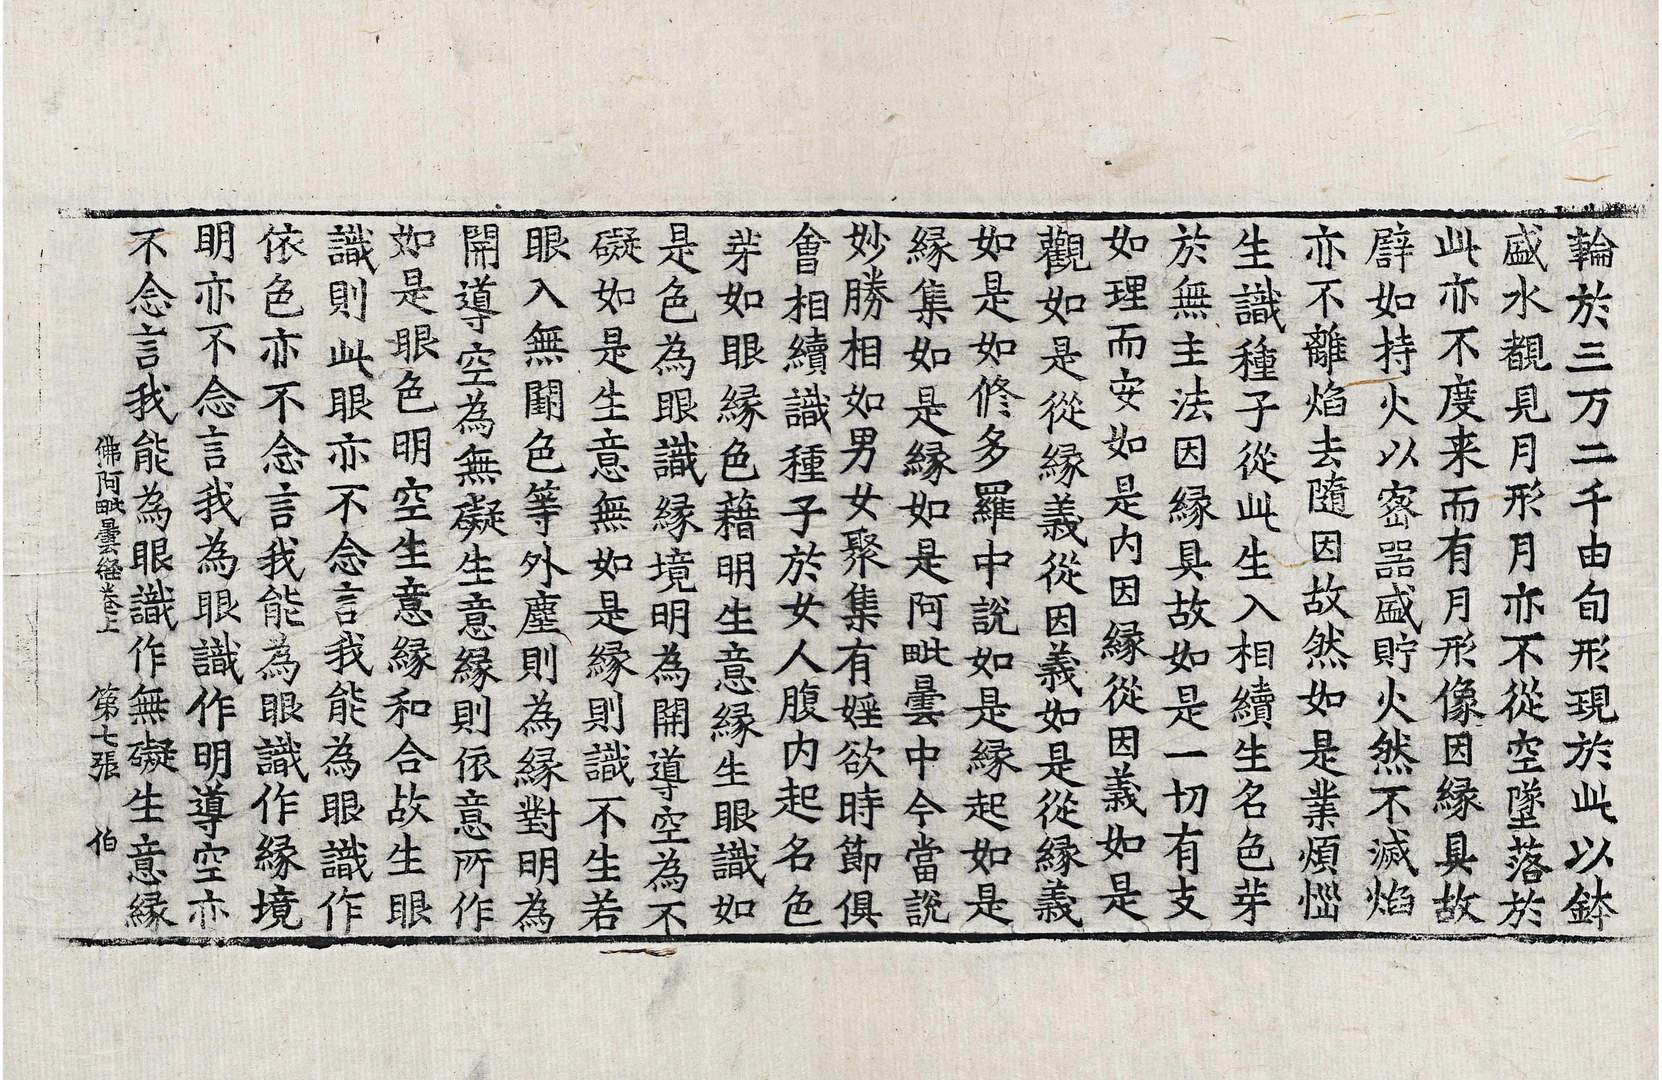 輪於三万二千由旬形現於此以鉢
盛水覩見月形月亦不從空墜落於
此亦不度来而有月形像因縁具故
譬如持火以宻器盛貯火然不滅焰
亦不離焰去隨因故然如是業煩惱
生識種子從此生入相續生名色芽
於無主法因縁具故如是一切有支
如理而安如是内因縁從因義如是
觀如是從縁義從因義如是從縁義
如是如修多羅中說如是縁起如是
縁集如是縁如是阿毗曇中今當說
妙勝相如男女聚集有婬欲時節俱
會相續識種子於女人腹内起名色
芽如眼縁色藉明生意縁生眼識如
是色為眼識縁境明為開導空為不
礙如是生意無如是縁則識不生若
眼入無闕色等外塵則為縁對明為
開導空為無礙生意縁則依意所作
如是眼色明空生意縁和合故生眼
識則此眼亦不念言我能為眼識作
依色亦不念言我能為眼識作縁境
明亦不念言我為眼識作明導空亦
不念言我能為眼識作無礙生意縁
佛阿毗曇經卷上 第七張 伯